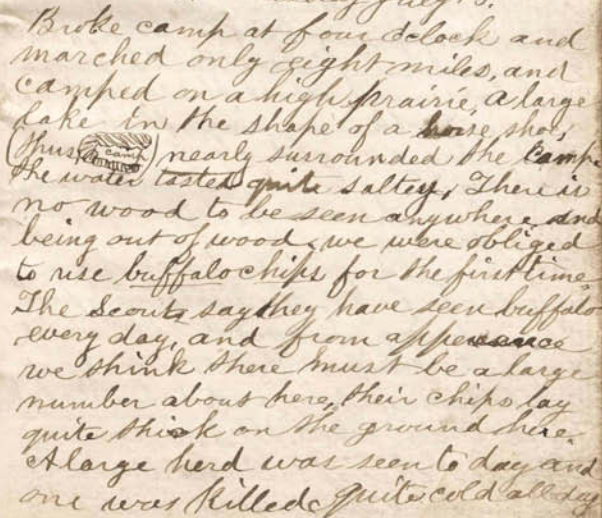 July 5.
Broke camp at four oclock and
marched only eight miles, and
camped on a high prairie, a large
lake in the shape of a horse shoe,
(thus, camp) nearly surrounded the camp
the water tasted quite saltey, There is
no wood to be seen anywhere and
being out of wood, we were obliged
to use buffalo chips for the first time.
The Scouts say they have seen buffalo
every day, and from appearance
we think there must be a large
number about here, their chips lay
quite thick on the ground here.
A large herd was seen to day and
one was killed, quite cold all day